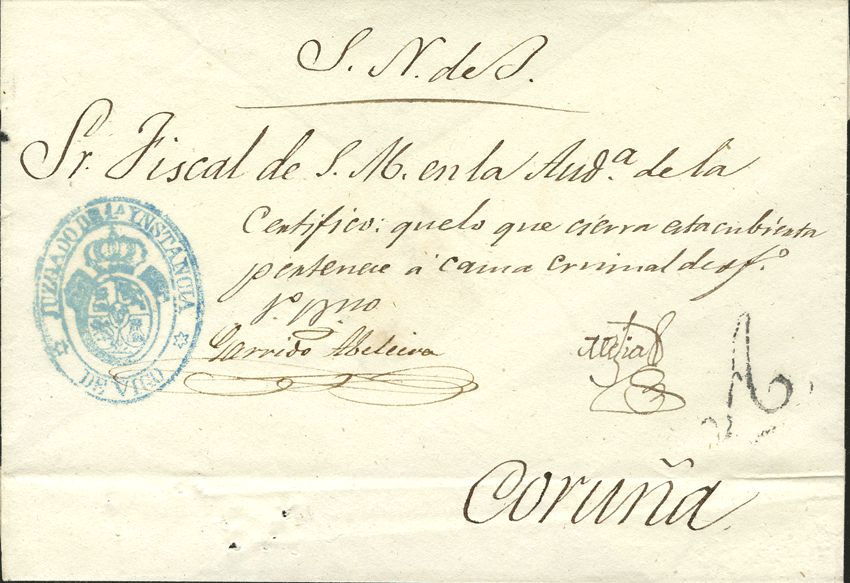 S. N. de S.
Sr. Fiscal de S. M. en la Aud.ª de la
Certifico: que lo que cierra esta cubierta
pertenece á causa criminal de of.º
Garrido Abeleira
JUZGADO DE 1ª YNSTANCIA
DE VIGO
A
Coruña